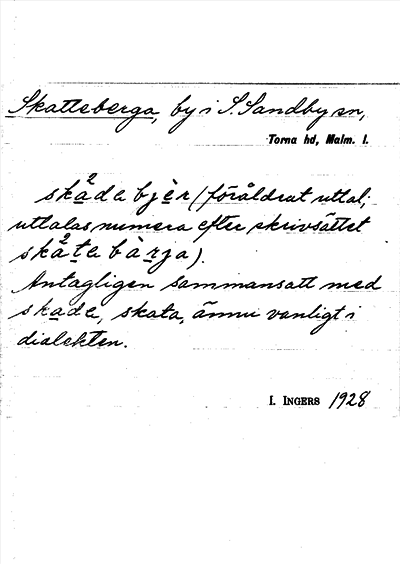 Skatteberga, by i S. Sandby sn,
Torna hd, Malm. l.
skå²de bjèr (föråldrat uttal;
uttalas numera efter skrivsättet
skå²te bàrja).
Antagligen sammansatt med
skade, skata, ännu vanligt i
dialekten.
I. INGERS 1928